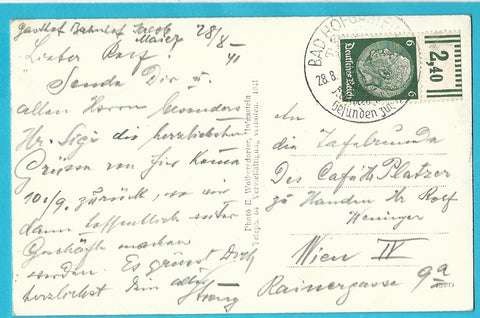 Gasthof Bahnhof Jacob
Maier
28/8
41
Lieber Rolf!
Sende Dir u.
allen Herrn besonders
Hr. Sigi die herzlichsten
Grüsse von hier Komme
10./9. zurück, wo wir
dann hoffentlich weiter
Geschäfte machen
werden. Es grüsst Dich
herzlichst Dein alter
Photo E. Wolkersdorfer, Hofgastein
Vervielfältigung verboten. 1941
BAD HOFGASTEIN
28.8.
Gesunden
Deutsches Reich
6
6
2,40
An
die Tafelrunde
Des Cafés Platzer
zu Handen Hr Rolf
Weninger
Wien IV
Rainergasse 9a